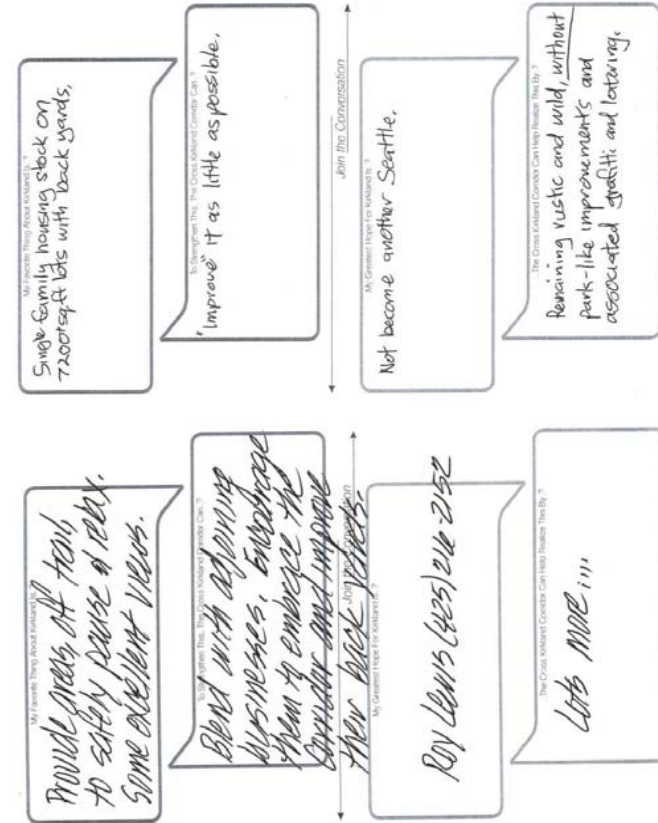 My Favorite Thing About Kirkland Is..?
Single family housing stock on
7200+sq.ft lots with back yards.
To Strengthen This, The Cross Kirkland Corridor Can..?
"Improve" it as little as possible.
Join the Conversation
My Greatest Hope For Kirkland Is..?
Not become another Seattle.
The Cross Kirkland Corridor Can Help Realize This By..?
Remaining rustic and wild, without
park-like improvements and
associated grafitti and lotaring.
My Favorite Thing About Kirkland Is..?
Provide areas, off trail,
to safely pause & relax.
Some excellent views.
To Strengthen This, The Cross Kirkland Corridor Can..?
Blend with adjoining
businesses. Encourage
them to embrace the
Corridor and improve
their back fences.
Join the Conversation
My Greatest Hope For Kirkland Is..?
Roy Lewis (425) 216-2152
The Cross Kirkland Corridor Can Help Realize This By..?
Lots MORE....